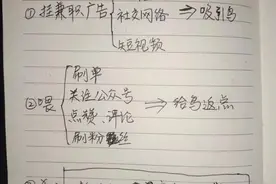 ①挂兼职广告 社交网络 ⇒ 吸引鸟
短视频
刷单
②喂 关注公众号 ⇒ 给鸟返点
点赞、评论
刷粉丝